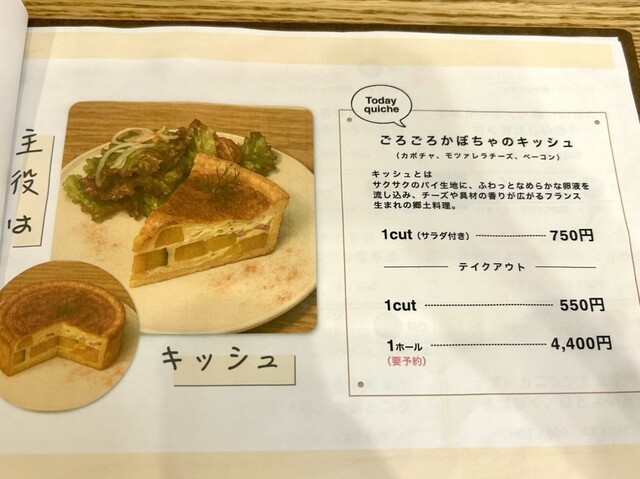 主役は
キッシュ
Today
quiche
ごろごろかぼちゃのキッシュ
(カボチャ、モツァレラチーズ、ベーコン)
キッシュとは
サクサクのパイ生地に、ふわっとなめらかな卵液を
流し込み、チーズや具材の香りが広がるフランス
生まれの郷土料理。
1cut (サラダ付き) 750円
テイクアウト
1cut 550円
1ホール 4,400円
(要予約)